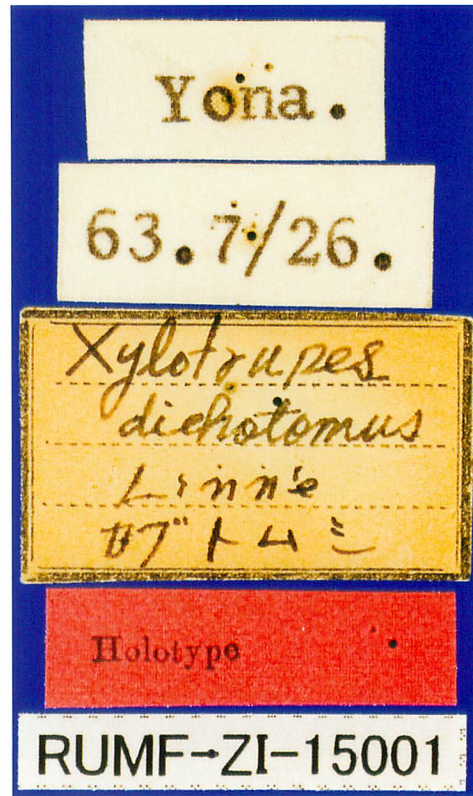 Yona.
63.7/26.
Xylotrupes
dichotomus
Linné
カブトムシ
Holotype
RUMF-ZI-15001